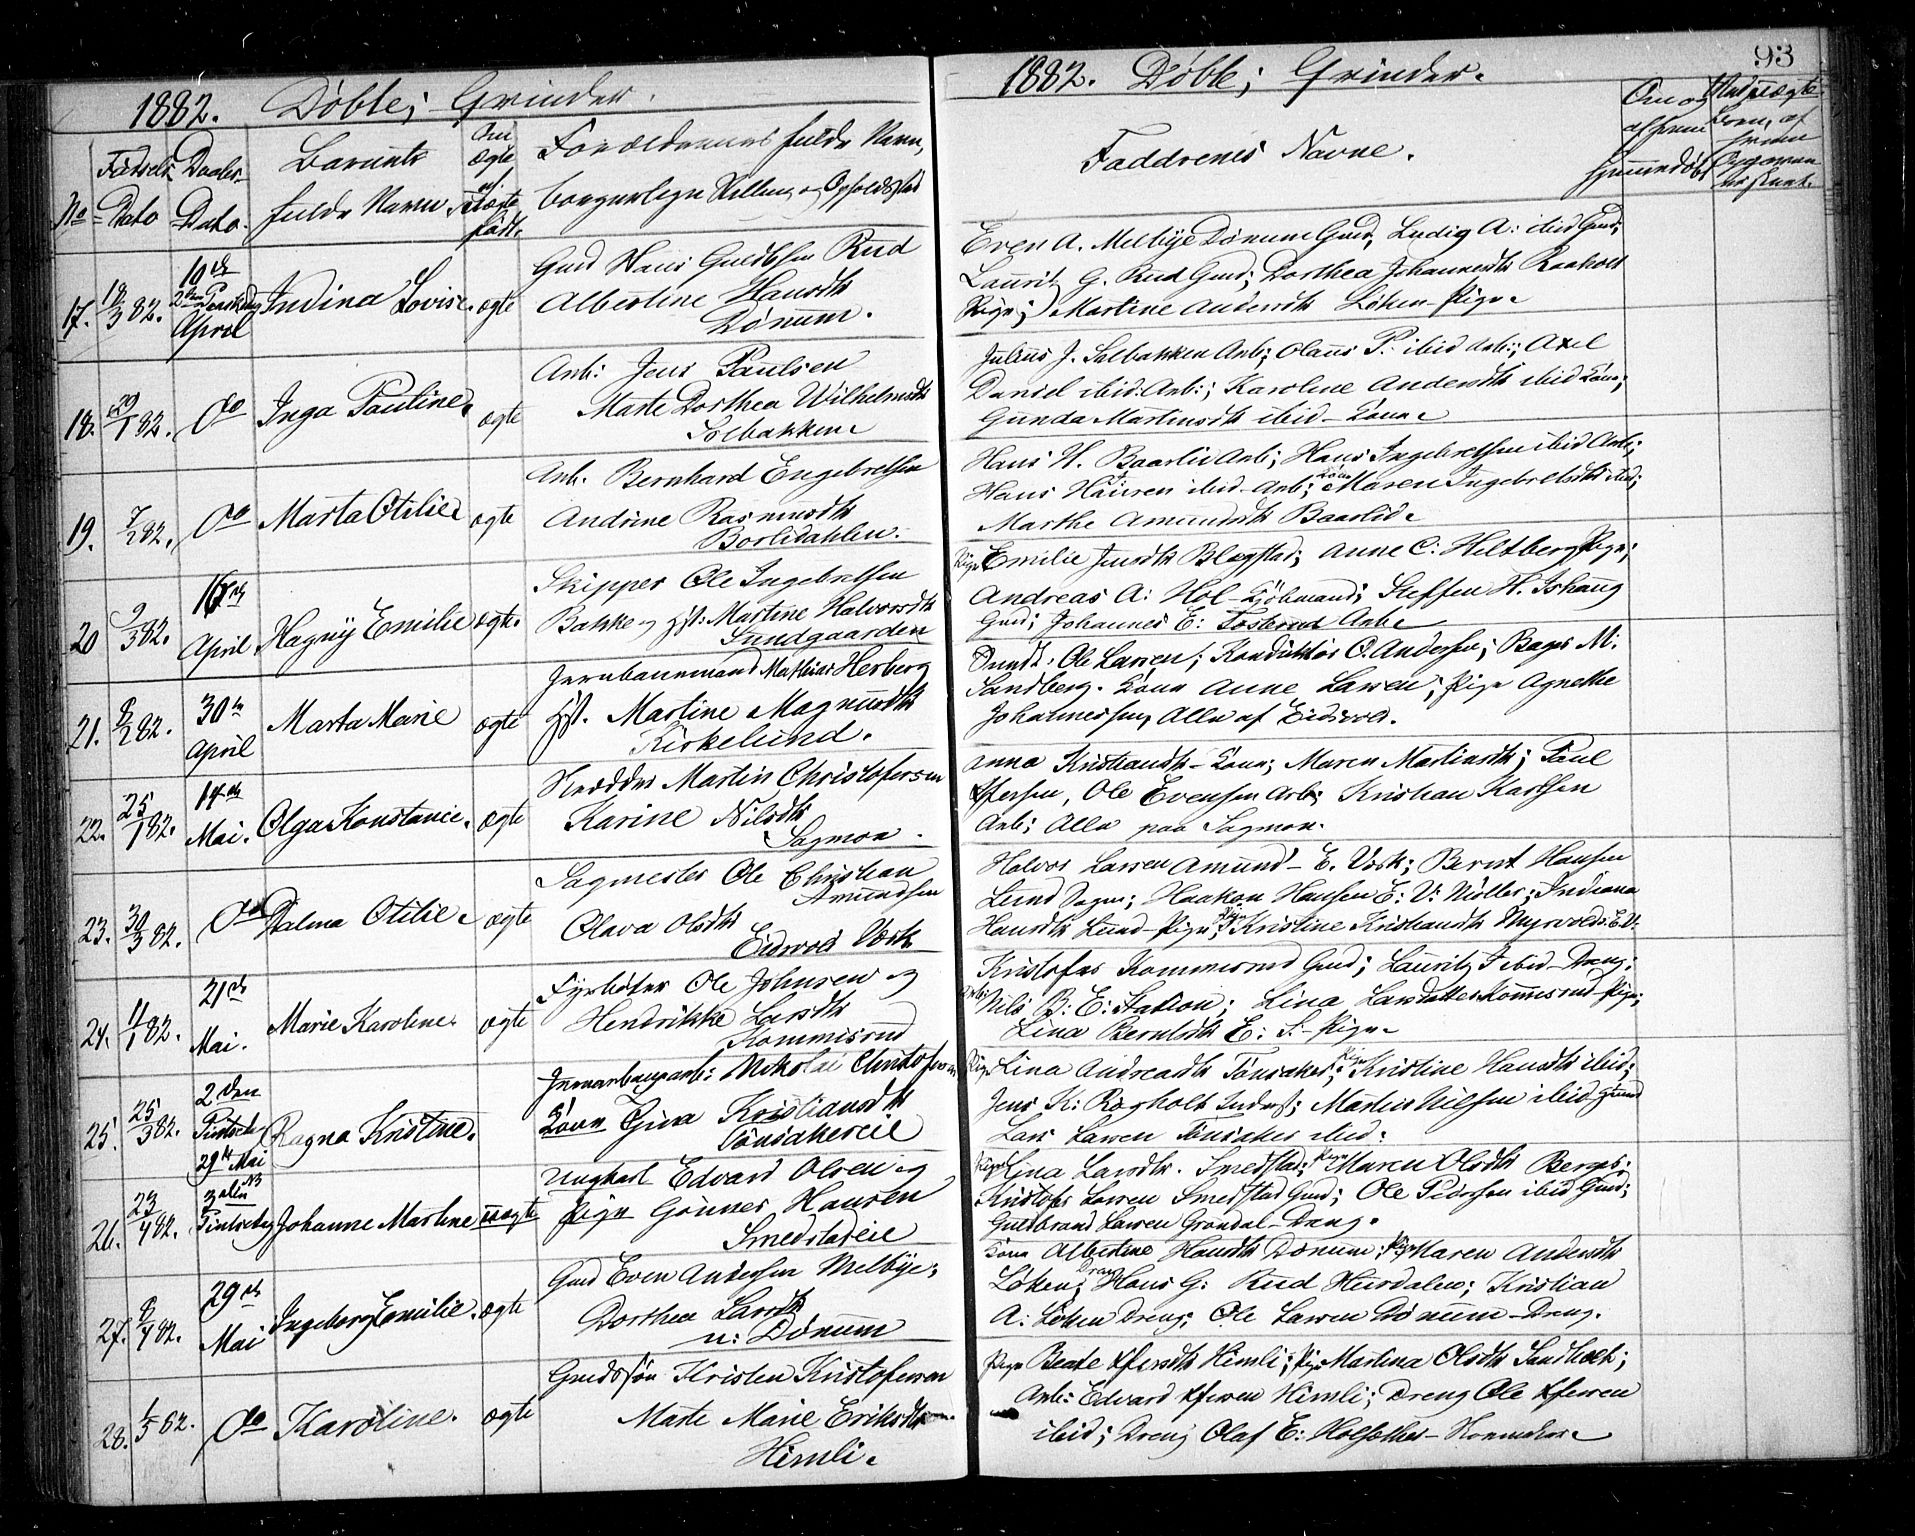 1882. Døbte; Grinder.
No
Fødsels Dato
Daabs Dato.
Barnets fulde Navn
Om ægte el. uægte født.
Forældrenes fulde Navn, borgerlige Stilling og Opholdssted
17. 18/3 82. 10de 2den Paaskedag April Indina Lovise. ægte
Gmd Hans Guldbsen Rud
Albertine Hansdtr
Dønum.
18. 29/1 82. Do Inga Pauline. ægte
Arb: Jens Paulsen
Marte Dorthea Wilhelmsdtr
Solbakken
19. 7/2 82. Do Marta Otilie ægte
Arb. Bernhard Engebretsen
Andrine Rasmusdtr
Borlidahlen.
20 9/3 82. 16de April. Hagny Emilie ægte.
Skipper Ole Ingebretsen
Bakke og Hst: Martine Halvorsdtr
Sundgaarden
21. 8/2 82. 30te April Marta Marie ægte
Jernbanemand Mathias Herberg
Hst. Martine Magnusdtr
Kirkelund.
22. 25/1 82. 14de Mai. Olga Konstance. ægte
Skrædder Martin Christofersen
Karine Nilsdtr
Sagmoen.
23. 30/3 82. Do Dalma Otilie. ægte
Sagmester Ole Christian
Amundsen
Olava Olsdtr
Eidsvold Værk
24. 11/1 82. 21de Mai. Marie Karoline. ægte
Fyrbøter Ole Johnsen og
Hendrikke Larsdtr
Kommisrud
25. 25/3 82. 2den Pintsedag 29de Mai Ragna Kristine.
Jernbanearb: Nikolai Christofersen
Kone Gina Kristiansdtr
Tønsakereie
26. 23/4 82. 3die Pintsedag Johanne Martine uægte
Ungkarl Edvard Olsen og
Pige Gønner Hansen
Smedstadeie
27. 8/4 82. 29de Mai Ingeborg Emilie. ægte
Gmd Even Andersen Melbye;
Dorthea Larsdtr
n: Dønum
28. 1/5 82. Do Karoline. ægte
Gmdssøn Kristen Kristofersen
Marte Marie Eriksdtr
Himli.
1882. Døbte; Grinder.
93
Faddrenes Navne.
Om og af hvem hjemmedøbt
Ved uægte Børn, af hvem Opgaven
Even A. Melbye Dønum Gmd, Ludvig A: ibid Gmd;
Laurits G. Rud Gmd; Dorthea Johannesdtr Raaholt
Pige; Martine Andersdtr Løken Pige.
Julius J. Solbakken Arb; Olaus P. ibid Arb:; Axel
Daniel ibid: Arb:; Karoline Andersdtr ibid Kone;
Gunda Martinsdtr ibid Kone
Hans H. Baarlie Arb; Hans Ingebretsen ibid Arb;
Hans Hansen ibid Arb; Kone Maren Ingebretsdtr ibid;
Marthe Amundsdtr Baarlid.
Pige Emilie Jensdtr Blegstad; Anne C: Heltberg Pige;
Andreas A: Hol Kjøbmand; Steffen H. Ishaug
Gmd; Johannes E: Fosbrud Arb.
Ole Larsen; Konduktør O. Andersen; Bager M:
Sandberg. Kone Anne Larsen; Pige Agnethe
Johannessen, Alle af Eidsvold.
Anna Kristiansdtr Kone; Maren Martiasdtr; Paul
Xfersen, Ole Evensen Arb; Kristian Karlsen
Arb; Alle paa Sagmoen.
Halvor Larsen Amund E. Værk; Bernt Hansen
Lund; Haakon Hansen E: V: Møller; Indiana
Hansdtr Lund Pige; Pige Kristine Kristiansdtr Myrvold E.V:
Kristofer Kommisrud Gmd; Laurits T ibid Dreng;
Arb: Nils B: E: Station; Lina Larsdatter Kommisrud Pige;
Lina Berntsdtr E: S. Pige
Pige Lina Andreasdtr Tønsaker; Pige Kristine Hansdtr ibid;
Jens K: Rogholt Inderst; Martin Nilsen ibid Gmd
Lars Larsen Tønsaker ibid.
Pige Lina Larsdtr. Smedstad; Pige Maren Olsdtr Berges;
Kristofer Larsen Smedstad Gmd; Ole Pedersen ibid Gmd;
Guldbrand Larsen Grøndal Dreng.
Kone Albertine Hansdtr Dønum; Pige Maren Andersdtr
Løken; Dreng Hans G: Rud Hurdalen; Kristian
A: Løken Dreng; Ole Larsen Dønum Dreng.
Pige Beate Xfersdtr Himli; Pige Martina Olsdtr Sandholt;
Arb: Edvard Xfersen Himli; Dreng Ole Xfersen
ibid; Dreng Olaf E: Holsether